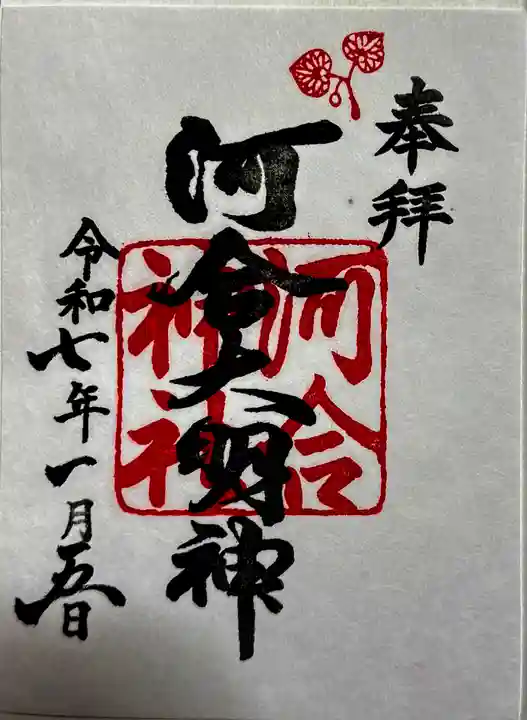 奉拝
河合大明神
河合神社
令和七年一月五日